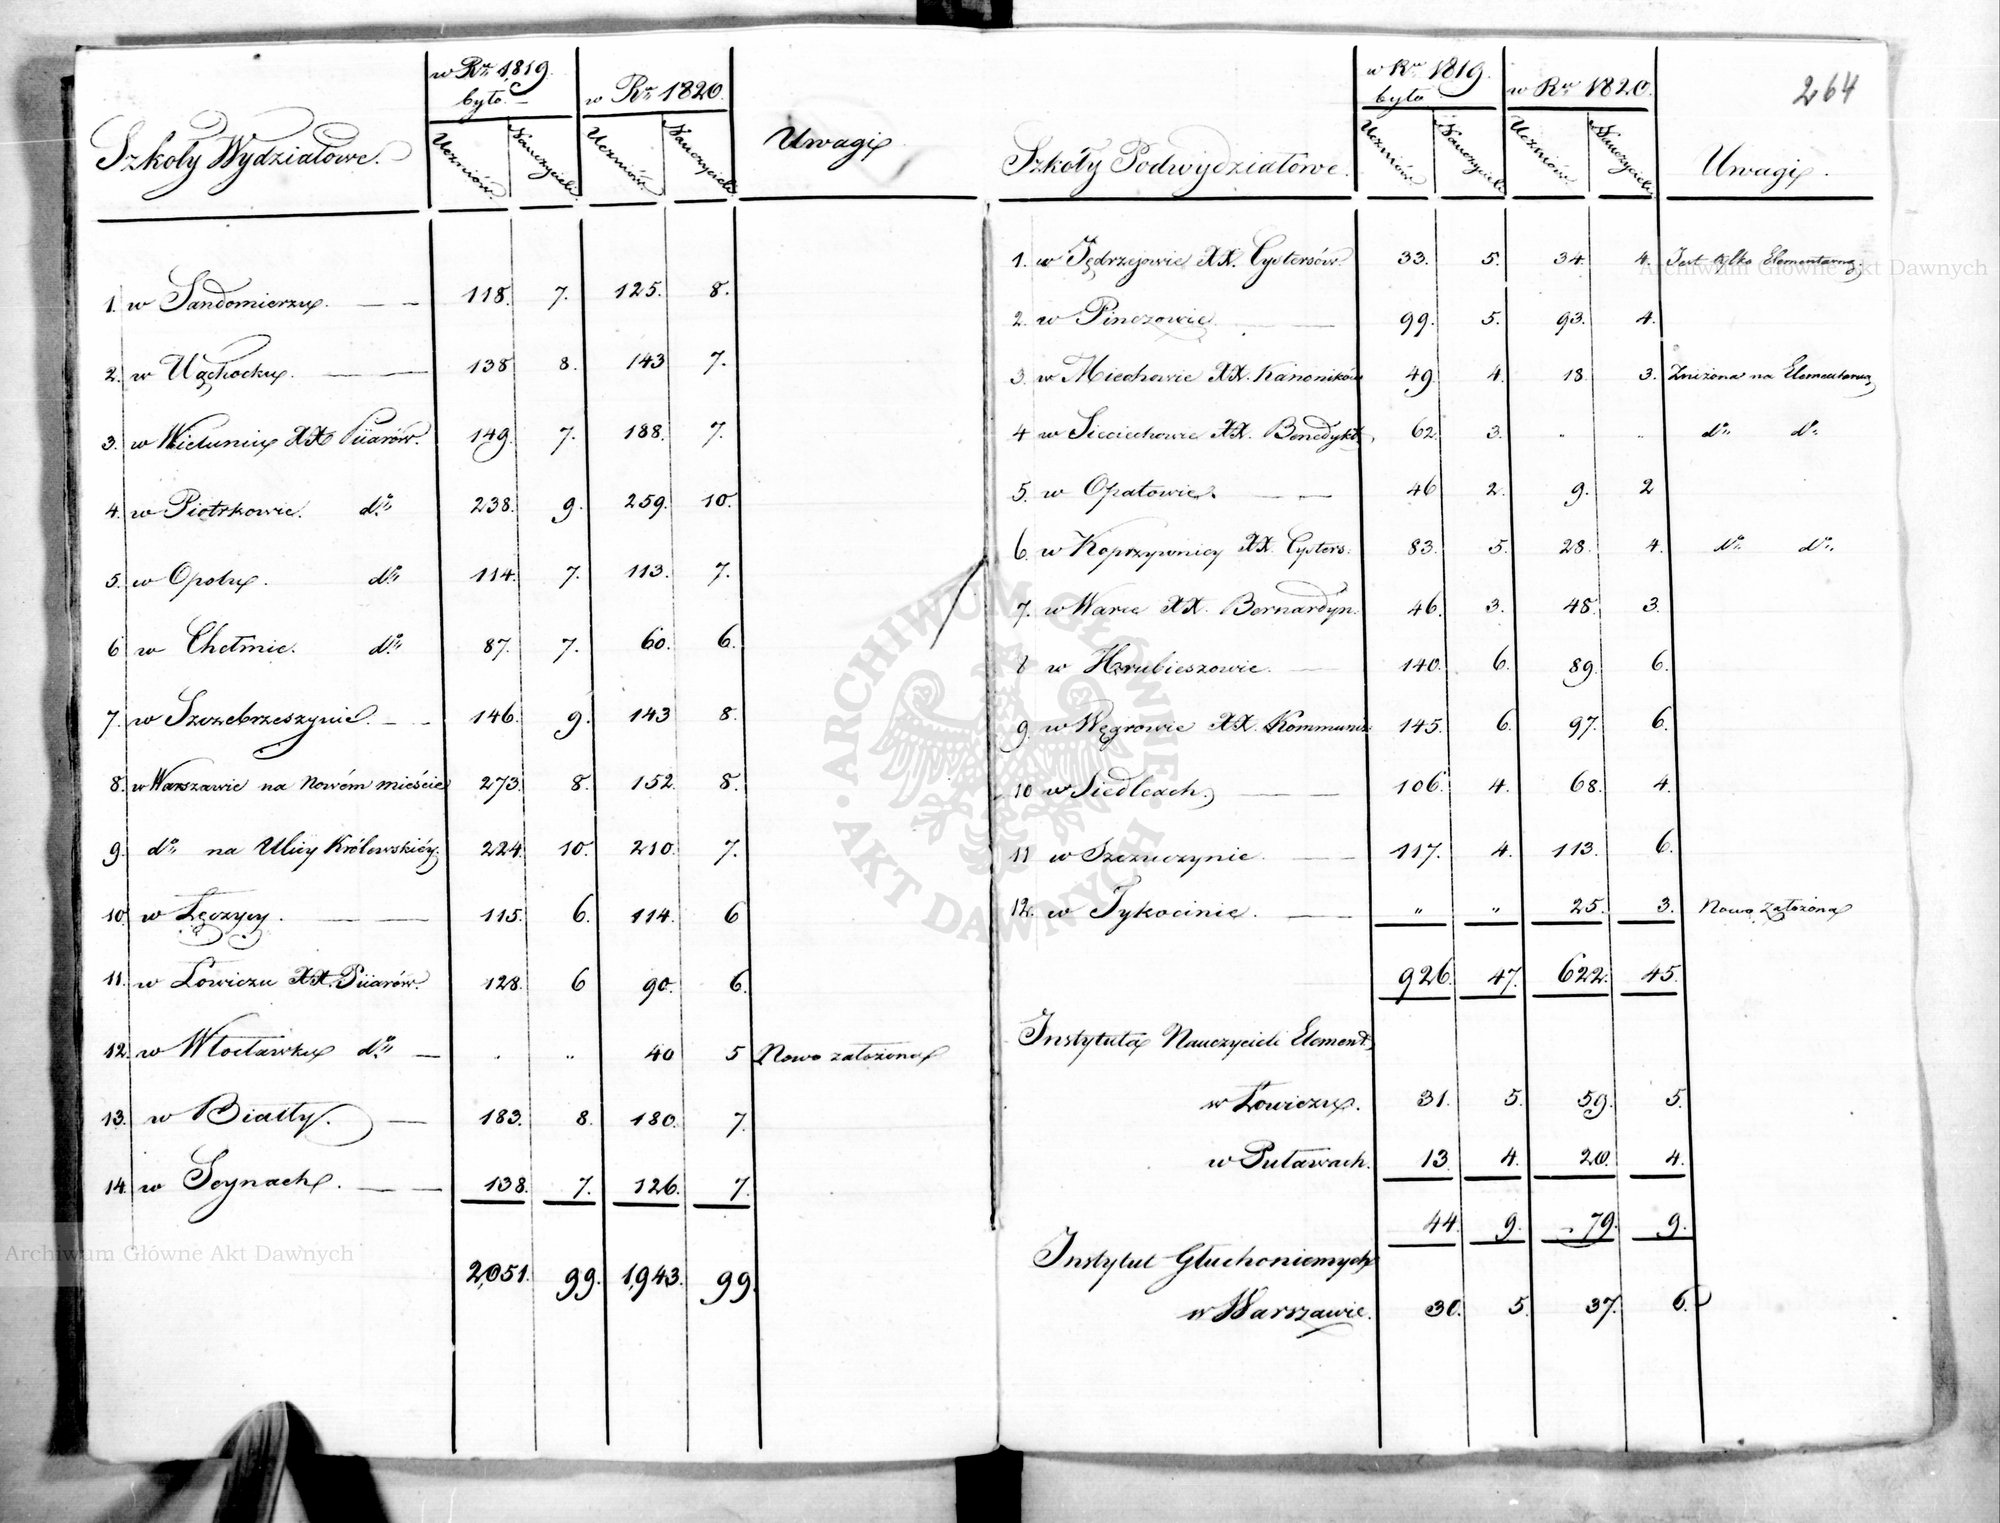 Szkoły Wydziałowe. w Ru 1819 było w Ru 1820. Uwagi
Uczniów Nauczycieli Uczniów Nauczycieli
1. w Sandomierzu. 118. 7. 125. 8.
2. w Wąchocku. 138 8. 143 7.
3. w Wieluniu XX Piiarów. 149. 7. 188. 7.
4. w Piotrkowie. do 238. 9. 259. 10.
5. w Opolu. do 114. 7. 113. 7.
6 w Chełmie. do 87. 7. 60. 6.
7. w Szczebrzeszynie. 146. 9. 143 8.
8. w Warszawie na Nowém mieście 273. 8. 152. 8.
9. do na Ulicy Królewskiéy. 224. 10. 210. 7.
10. w Łęczycy. 115. 6. 114. 6
11. w Łowiczu XX. Piiarów. 128. 6 90. 6.
12. w Włocławku do . .. 40 5 Nowo założona
13. w Białły. 183. 8. 180. 7.
14. w Seynach. 138. 7. 126. 7.
2,051. 99. 1,943. 99.
264
Szkoły Podwydziałowe. w Ru 1819. było w Ru 1820. Uwagi.
Uczniów Nauczycieli Uczniów Nauczycieli
1. w Jędrzejowie XX. Cystersów. 33. 5. 34. 4. Jest tylko Elementarną.
2. w Pinczowie 99. 5. 93. 4.
3. w Miechowie XX. Kanoników 49. 4. 18. 3. Zniżona na Elementarną
4 w Sieciechowie XX. Benedykt. 62. 3. .. .. do do
5. w Opatowie. 46 2. 9. 2
6. w Koprzywnicy XX. Cysters. 83. 5. 28. 4. do do
7. w Warce XX. Bernardyn. 46. 3. 48. 3.
8 w Hrubieszowie. 140. 6. 89. 6.
9. w Węgrowie XX. Kommunis. 145. 6. 97. 6.
10 w Siedlcach. 106. 4. 68. 4.
11 w Szczuczynie. 117. 4. 113. 6.
12. w Tykocinie. " " 25. 3. Nowo założona
926. 47. 622. 45.
Instytuta Nauczycieli Element.
w Łowiczu. 31. 5. 59. 5.
w Puławach. 13. 4. 20. 4.
44. 9. 79. 9.
Instytut Głuchoniemych
w Warszawie. 30. 5. 37. 6.
Archiwum Główne Akt Dawnych
Archiwum Główne Akt Dawnych
ARCHIWUM GŁÓWNE AKT DAWNYCH